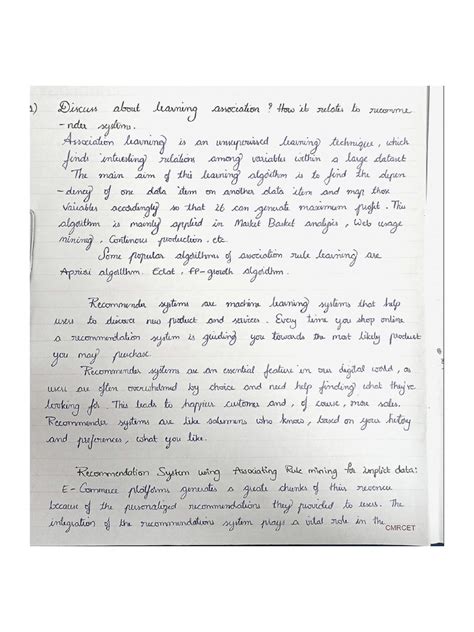 1) Discuss about learning association? How it relates to recomme
-nder systems.
Association learning is an unsupervised learning technique, which
finds intuesting relation among variables within a large dataset
The main aim of this learning algorithm is to find the depen
-dency of one data item on another data item and map those
variables accordingly so that it can generate maximum profit. This
algorithm is mainly applied in Market Basket analysis, Web usage
mining, Continous production, etc
Some popular algorithms of association rule learning are
Apriori algorithm Eclat, FP-growth algorithm.
Recommender systems are machine learning systems that help
users to discover new product and services. Every time you shop online
a recommendation system is guiding you towards the most likely product
you may purchase.
Recommender systems are an essential feature in our digital world, as
users are often overwhelmed by choice and need help finding what they've
looking for. This leads to happier customer and, of course, more sales.
Recommender systems are like salesmens who know, based on your history
and preferences, what you like.
Recommendation System using Associating Rule mining for implict data:
E-Commerce platforms generates a chunks of this revenue
because of the personalized recommendations they provided to users. The
integration of the recommendations system plays a vital role in the
CMRCET